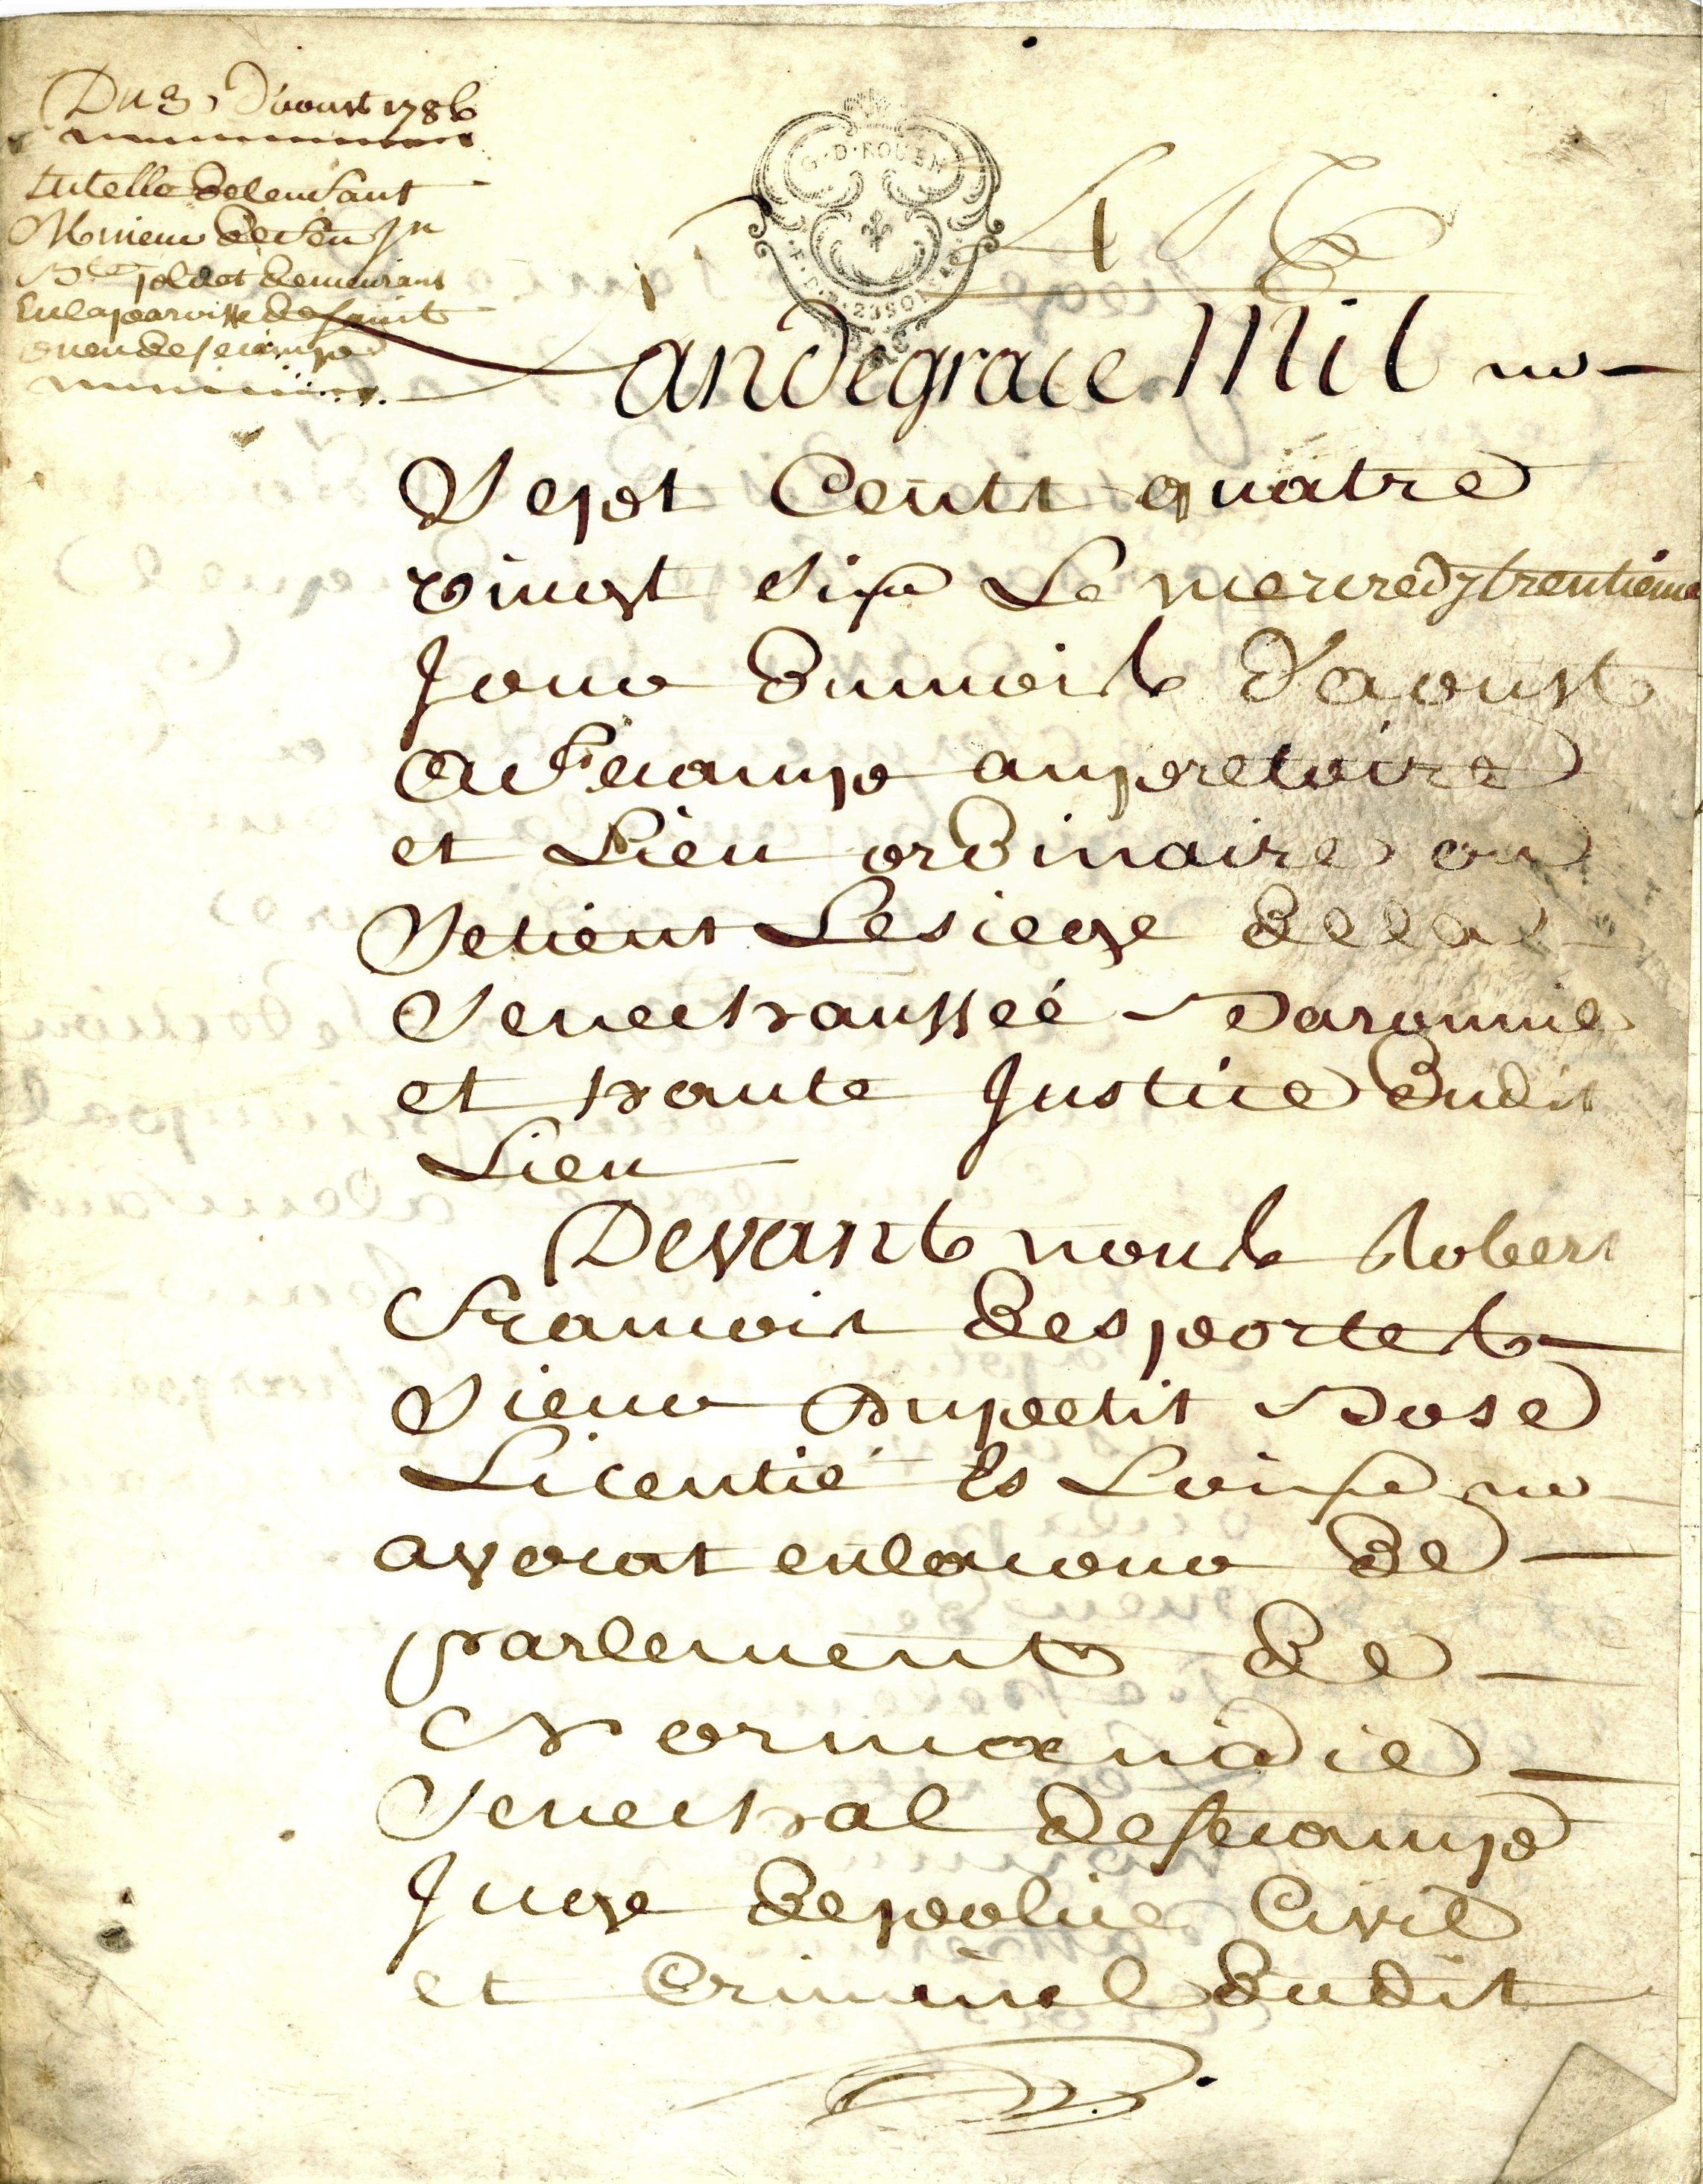 Du 3. D'aoust 1786
tutelle de lenfant
Mineur de feu Jn
Bte poldet demeurant
en la paroisse de saint
ouen de fecamp
G·D·ROUEN
Lan de grace Mil
Sept Cents quatre
vingt six Le mercredy trentieme
Jour du mois D'aoust
A fecamp au pretoire
et Lieu ordinaire ou
Se tient Le siege de la
Senechaussée Baronnie
et haute Justice dudit
Lieu
Devant nous Robert
francois desportes
Sieur du petit Bosc
Licentié Es Loix
avocat en la cour de
parlement de
Normandie
Senechal de fecamp
Juge de police Civil
et Criminel dudit